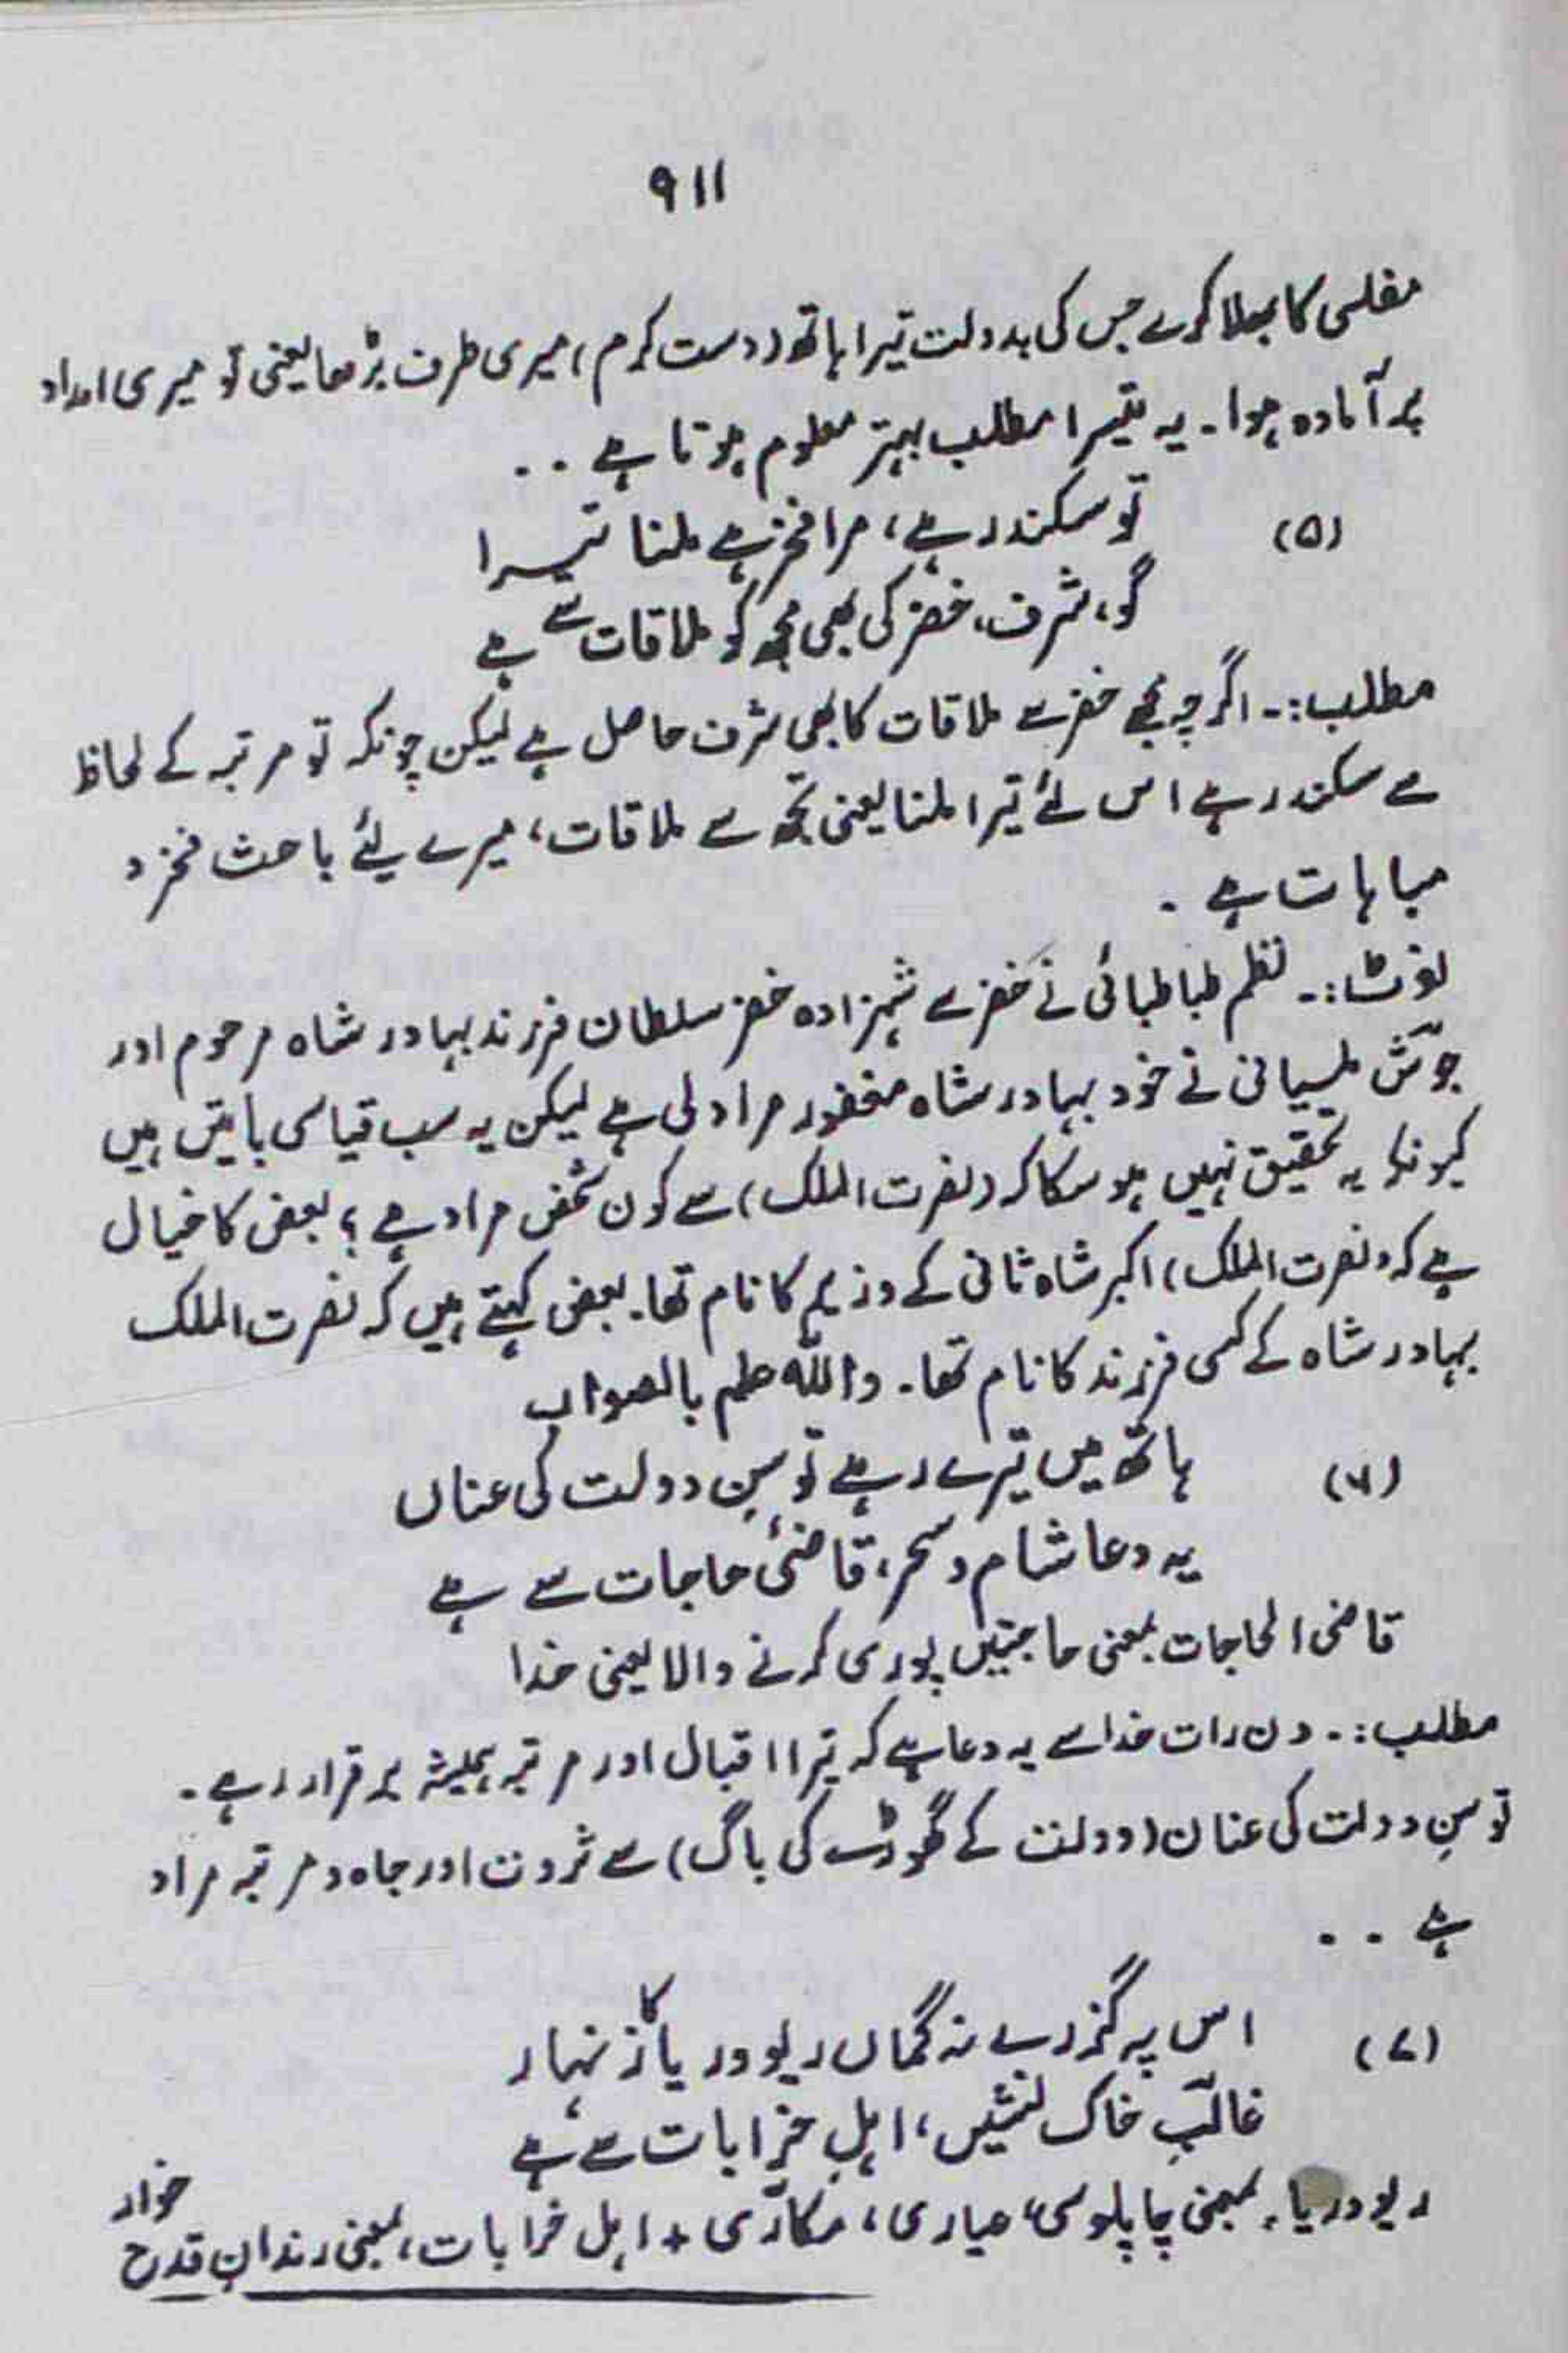 ۹۱۱
مفلسی کا بھلا کرے جس کی بدولت تیرا ہاتھ (دست کرم) میری طرف بڑھا یعنی تو میری امداد
پر آمادہ ہوا۔ یہ تیسرا مطلب بہتر معلوم ہوتا ہے ۔۔
(۵) تو سکندر ہے، مرا فخر ہے ملنا تیرا
گو، شرف، خضر کی بھی مجھ کو ملاقات سے ہے
مطلب:۔ اگرچہ مجھے خضر سے ملاقات کا بھی شرف حاصل ہے لیکن چونکہ تو مرتبہ کے لحاظ
سے سکندر ہے اس لئے تیرا ملنا یعنی تجھ سے ملاقات، میرے لئے باعث فخر و
مباہات ہے ۔
نوٹ:۔ نظم طباطبائی نے خضر سے شہزادہ خضر سلطان فرزند بہادر شاہ مرحوم اور
جوش ملسیانی نے خود بہادر شاہ مغفور مراد لی ہے لیکن یہ سب قیاسی باتیں ہیں
کیونکہ یہ تحقیق نہیں ہو سکا کہ (نصرت الملک) سے کون شخص مراد ہے ؟ بعض کا خیال
ہے کہ (نصرت الملک) اکبر شاہ ثانی کے وزیر کا نام تھا۔ بعض کہتے ہیں کہ نصرت الملک
بہادر شاہ کے کسی فرزند کا نام تھا۔ واللہ علم بالصواب
(۶) ہاتھ میں تیرے رہے توسنِ دولت کی عناں
یہ دعا شام و سحر، قاضئ حاجات سے ہے
قاضی الحاجات بمعنی حاجتیں پوری کرنے والا یعنی خدا
مطلب:۔ دن رات خدا سے یہ دعا ہے کہ تیرا اقبال اور مرتبہ ہمیشہ برقرار رہے۔
توسنِ دولت کی عنان (دولت کے گھوڑے کی باگ) سے ثروت اور جاہ و مرتبہ مراد
ہے ۔۔
(۷) اس پہ گزرے نہ گماں ریو و ریا کا زنہار
غالبِ خاک نشیں، اہلِ خرابات سے ہے
ریو و ریا، بمعنی چاپلوسی، عیاری، مکاری + اہل خرابات، بمعنی رندانِ قدح خوار